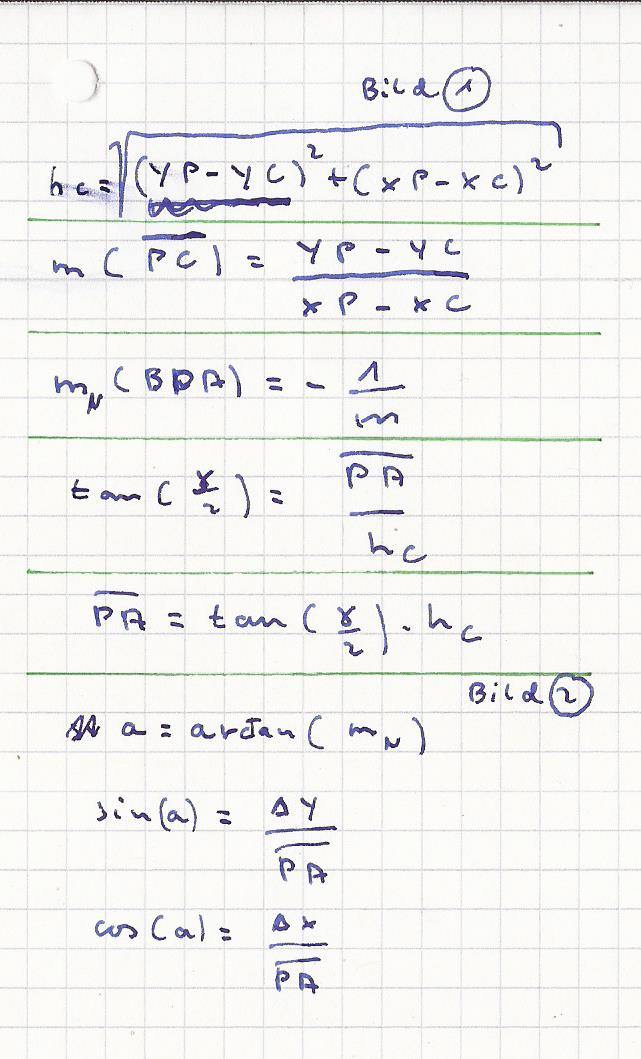 Bild ①
hc = √((YP - YC)² + (XP - XC)²)
m ( P̅C̅ ) = (YP - YC) / (XP - XC)
m_N (BPA) = - 1/m
tan ( γ/2 ) = P̅A̅ / h_C
P̅A̅ = tan ( γ/2 ) · h_C
Bild ②
a = arctan ( m_N )
sin(a) = ΔY / P̅A̅
cos(a) = ΔX / P̅A̅